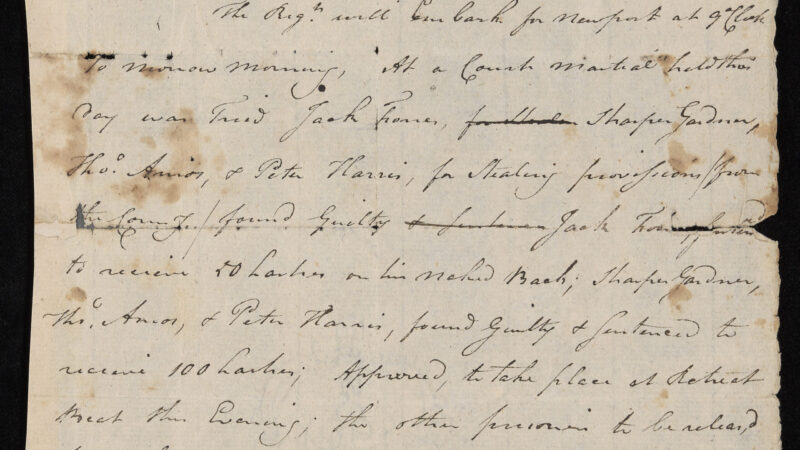 The Regt. will Embark for Newport at 9 oClock
To morrow morning, At a Court Martial held this
day was Tried Jack Fones, Sharper Gardner,
Thos. Amos, & Peter Harris, for Stealing provisions/from
the County/found Guilty & Sentence Jack Fones, Sentencd
to receive 50 Lashes on his Naked Back; Sharper Gardner,
Thos. Amos, & Peter Harris, found Guilty & Sentenced to
receive 100 Lashes; Approved, to take place at Retreat
Beat this Evening; the other prisoners to be releasd